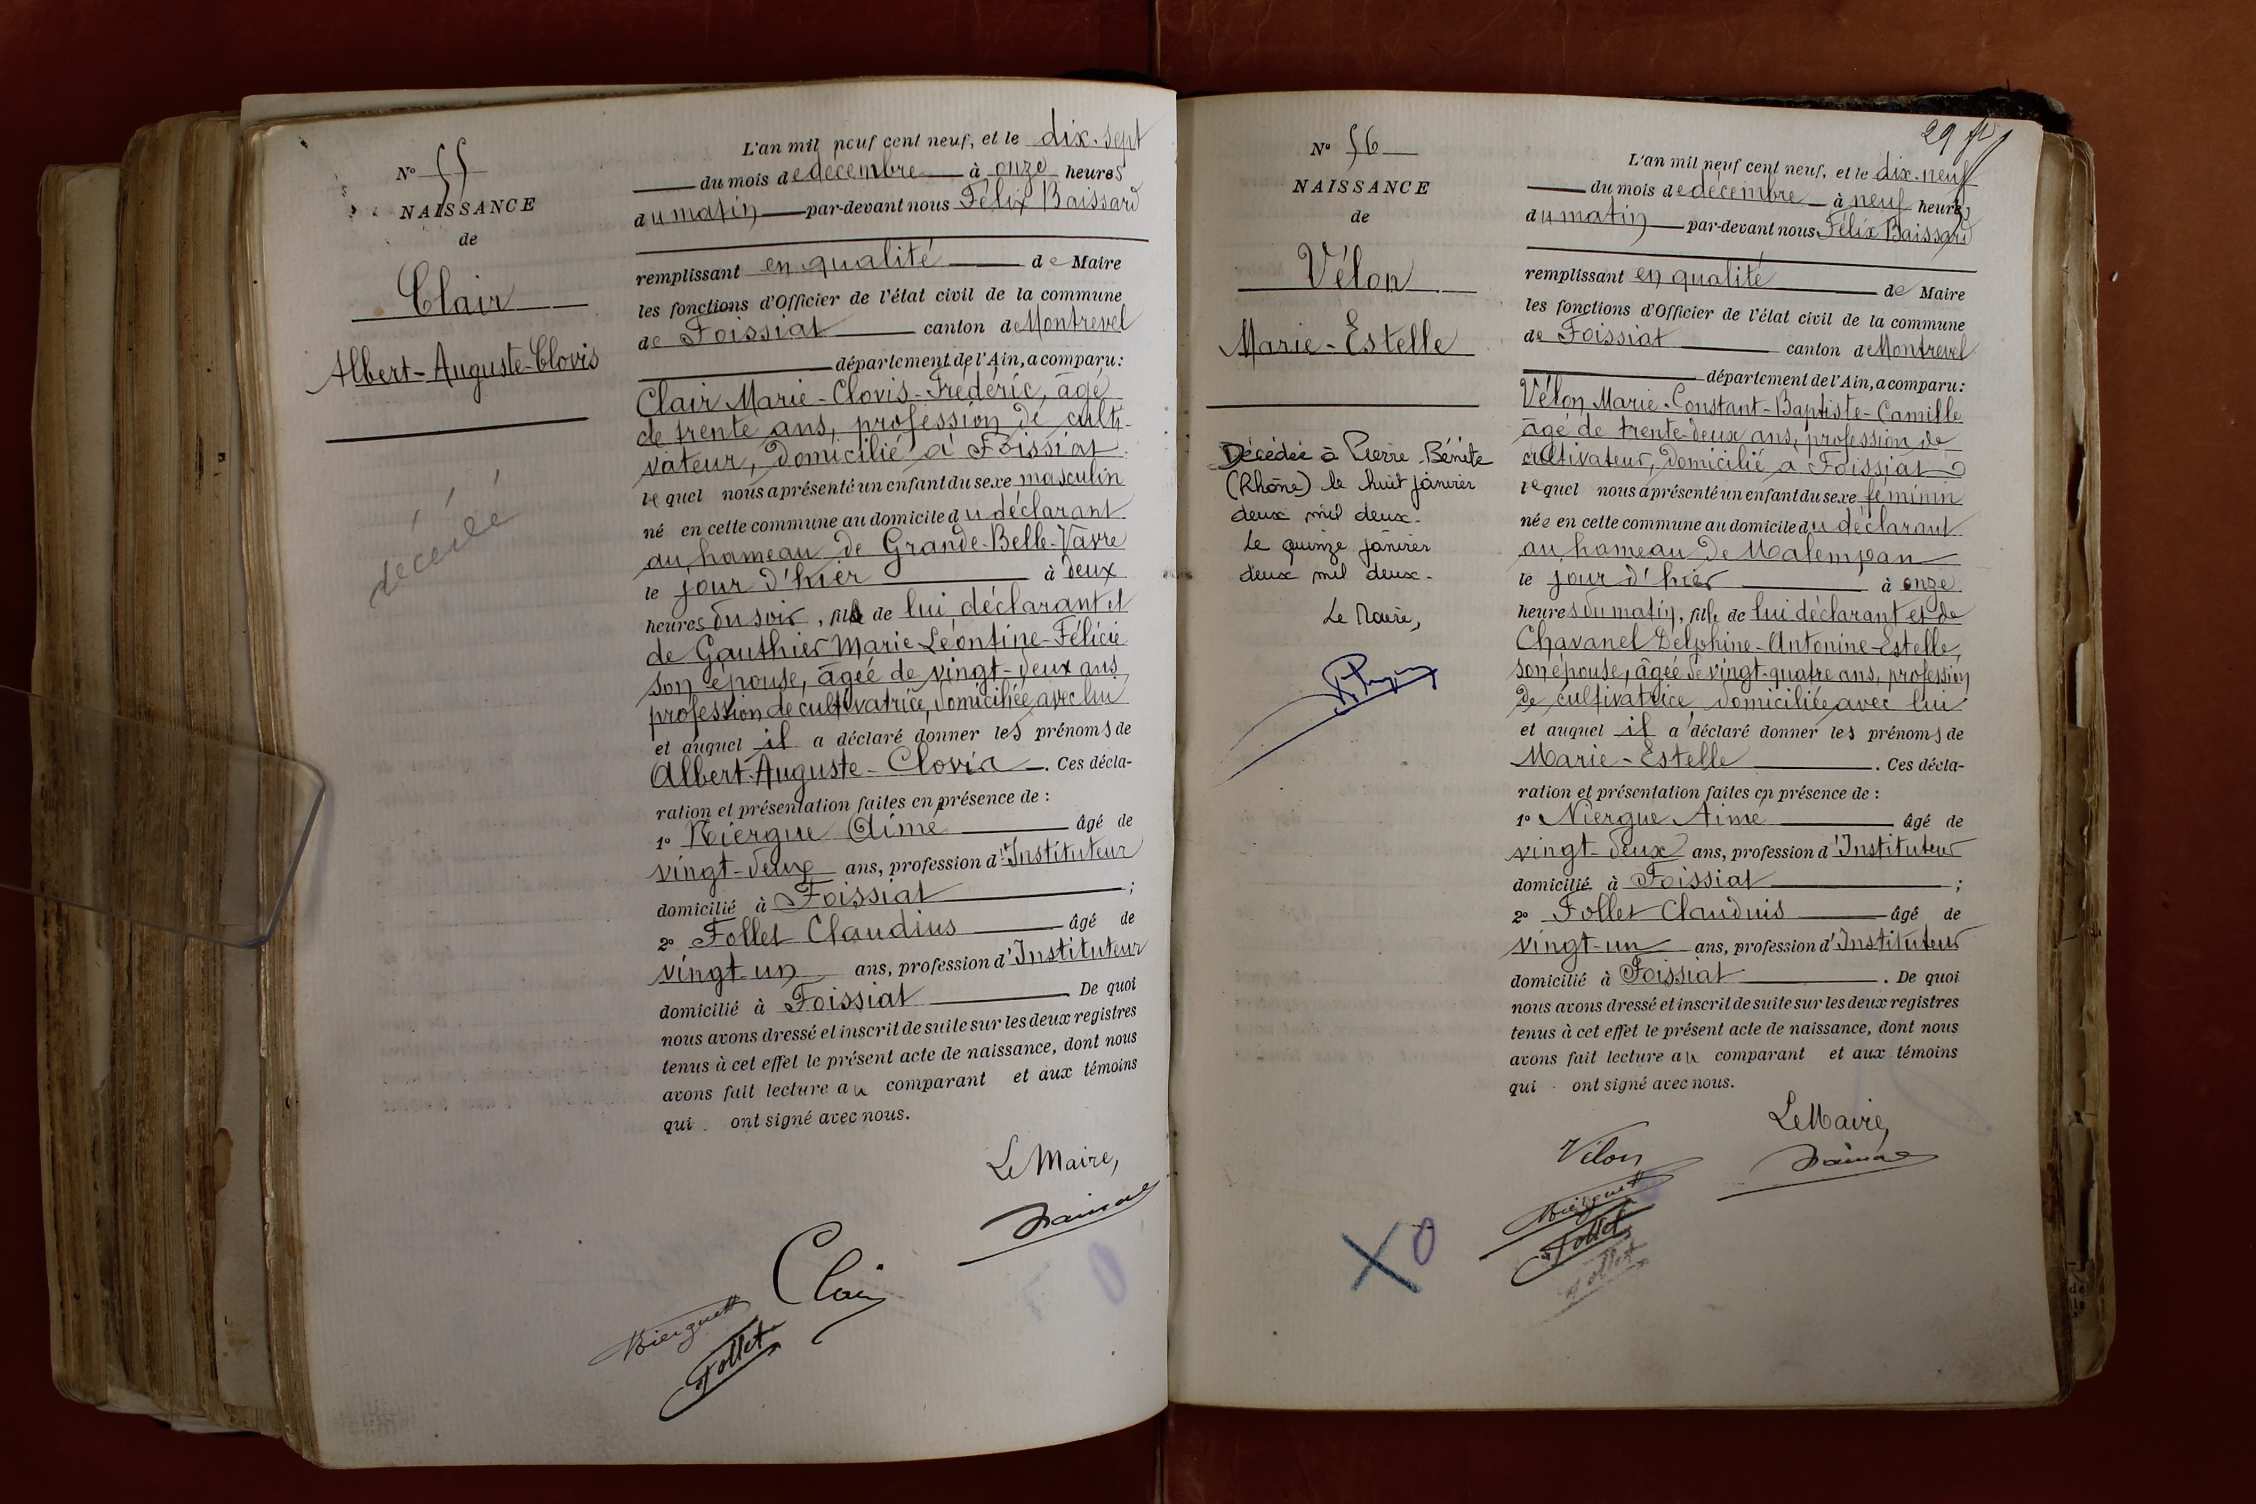 N° 55
NAISSANCE
de
Clair
Albert-Auguste-Clovis
décédé
L'an mil neuf cent neuf, et le dix-sept
du mois de décembre à onze heures
du matin par-devant nous Félix Baissard
remplissant en qualité de Maire
les fonctions d'Officier de l'état civil de la commune
de Foissiat canton de Montrevel
département de l'Ain, a comparu:
Clair Marie-Clovis-Frédéric, âgé
de trente ans, profession de culti-
vateur, domicilié à Foissiat
lequel nous a présenté un enfant du sexe masculin
né en cette commune au domicile du déclarant
au hameau de Grande-Belle-Vavre
le jour d'hier à deux
heures du soir, fils de lui déclarant et
de Gauthier Marie Léontine-Félicie
son épouse, âgée de vingt-deux ans,
profession de cultivatrice, domiciliée avec lui
et auquel il a déclaré donner les prénoms de
Albert-Auguste-Clovis. Ces décla-
ration et présentation faites en présence de :
1° Niergue Aimé âgé de
vingt-deux ans, profession d'Instituteur
domicilié à Foissiat ;
2° Follet Claudius âgé de
vingt-un ans, profession d'Instituteur
domicilié à Foissiat De quoi
nous avons dressé et inscrit de suite sur les deux registres
tenus à cet effet le présent acte de naissance, dont nous
avons fait lecture au comparant et aux témoins
qui ont signé avec nous.
Le Maire,
Clair
Follet
29 
N° 56
NAISSANCE
de
Vélon
Marie-Estelle
Décédée à Pierre-Bénite
(Rhône) le huit janvier
deux mil deux.
Le quinze janvier
deux mil deux.
Le Maire,
L'an mil neuf cent neuf, et le dix-neuf
du mois de décembre à neuf heures
du matin par-devant nous Félix Baissard
remplissant en qualité de Maire
les fonctions d'Officier de l'état civil de la commune
de Foissiat canton de Montrevel
département de l'Ain, a comparu:
Vélon Marie-Constant-Baptiste-Camille
âgé de trente-deux ans, profession de
cultivateur, domicilié à Foissiat
lequel nous a présenté un enfant du sexe féminin
née en cette commune au domicile du déclarant
au hameau de Malempan
le jour d'hier à onze
heures du matin, fille de lui déclarant et de
Chavanel Delphine-Antonine-Estelle,
son épouse, âgée de vingt-quatre ans, profession
de cultivatrice domiciliée avec lui
et auquel il a déclaré donner les prénoms de
Marie-Estelle. Ces décla-
ration et présentation faites en présence de :
1° Niergue Aimé âgé de
vingt-deux ans, profession d'Instituteur
domicilié à Foissiat ;
2° Follet Claudius âgé de
vingt-un ans, profession d'Instituteur
domicilié à Foissiat. De quoi
nous avons dressé et inscrit de suite sur les deux registres
tenus à cet effet le présent acte de naissance, dont nous
avons fait lecture au comparant et aux témoins
qui ont signé avec nous.
Le Maire,
Vélon
Follet
Follet
X 0